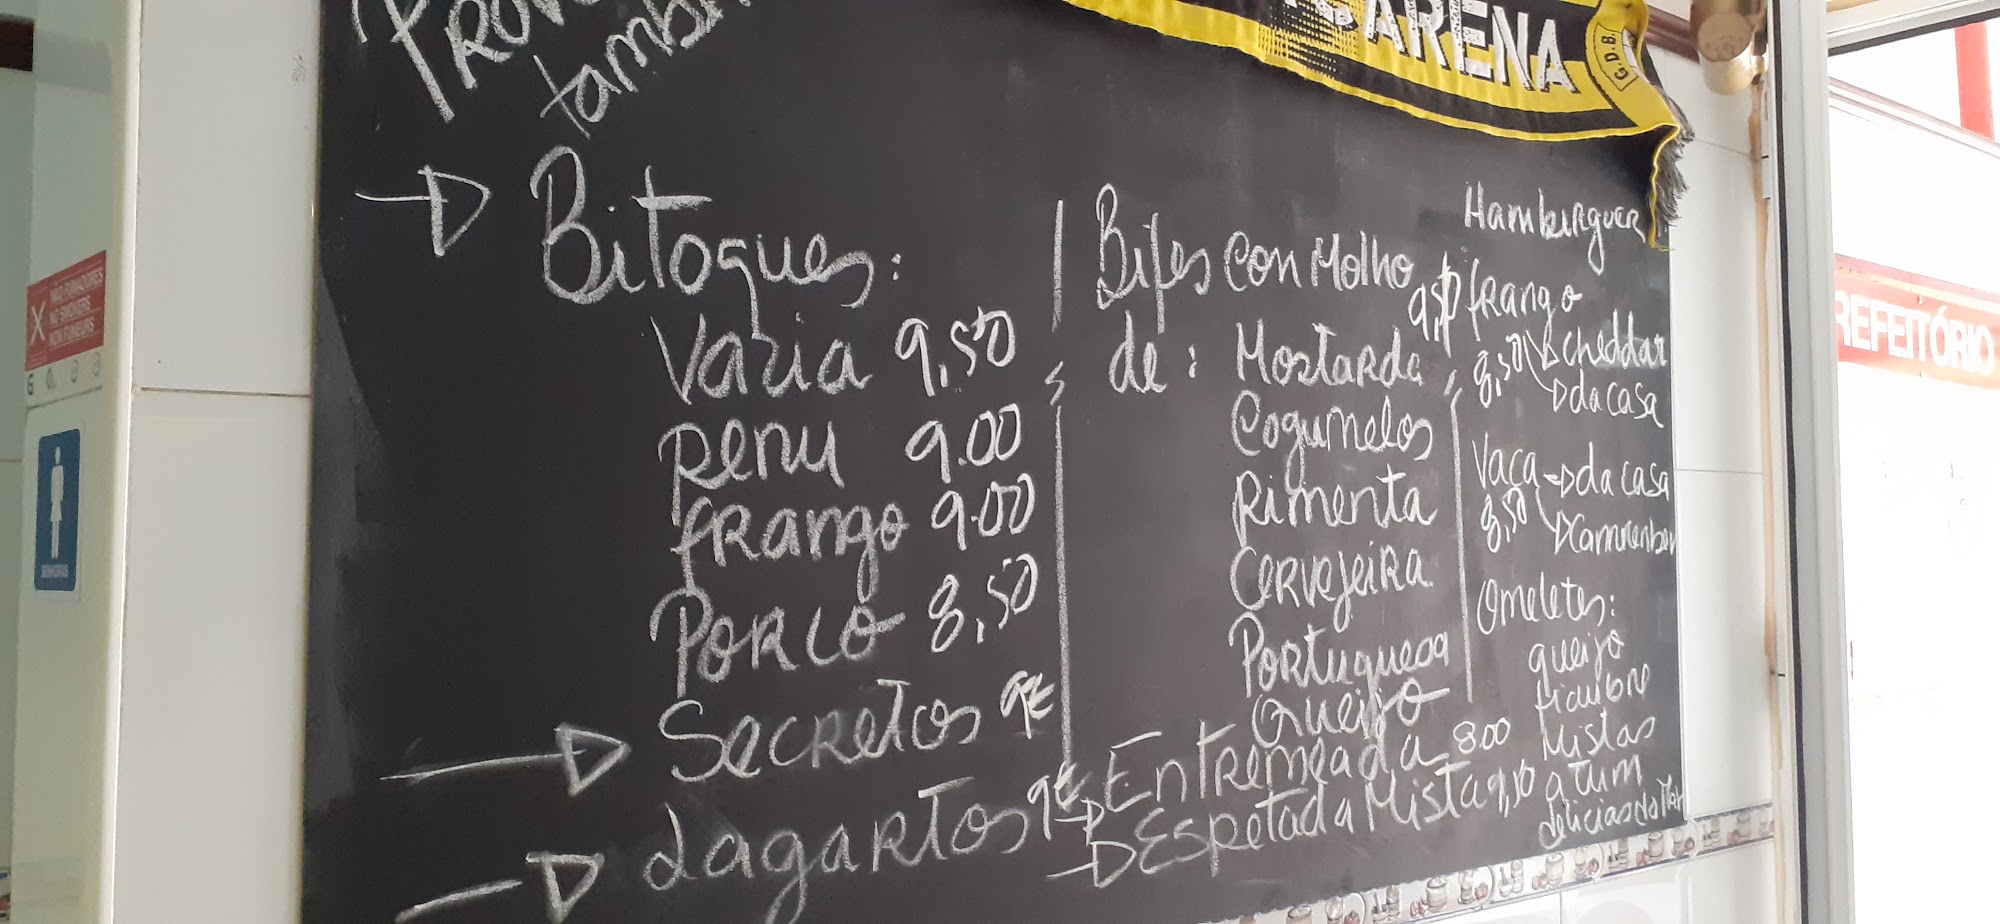 também
BARENA
G.D.B.
NÃO FUMADORES
NO SMOKERS
NON FUMEURS
SENHORAS
REFEITÓRIO
Bitoques:
Vazia 9,50
Peru 9.00
Frango 9.00
Porco 8,50
Secretos 9€
Lagartos 9€
Bifes Con Molho 9,50
de: Mostarda
Cogumelos
Pimenta
Cervejeira
Portuguesa
Queijo
Entremeada 8.00
Espetada Mista 9,50
Hamburguer
frango
8,50 cheddar
da casa
Vaca da casa
8,50
Omeletes:
queijo
Mistas
atum
delicias do Mar